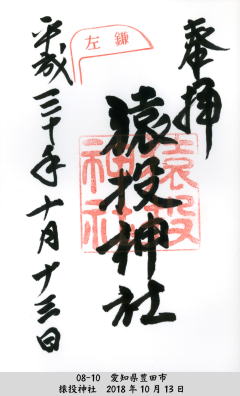 奉拝
猿投神社
猿投神社
左鎌
平成三十年十月十三日
08-10 愛知県豊田市
猿投神社 2018年10月13日